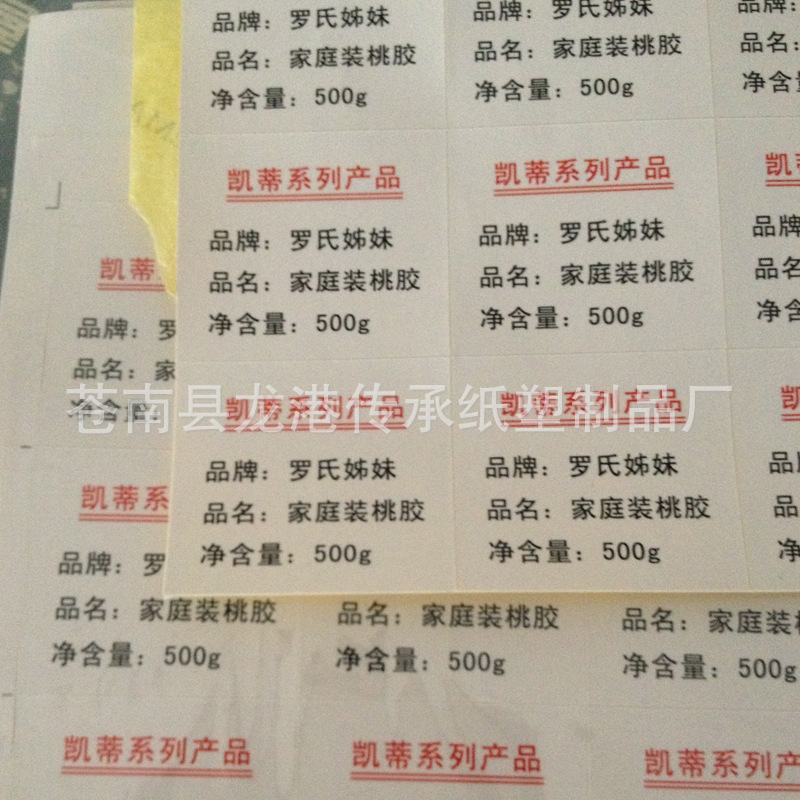 品牌：罗氏姊妹
品名：家庭装桃胶
净含量：500g
品牌：罗氏姊妹
品名：家庭装桃胶
净含量：500g
品牌:
品名:
净含
凯蒂系列产品
品牌：罗氏姊妹
品名：家庭装桃胶
净含量：500g
凯蒂系列产品
品牌：罗氏姊妹
品名：家庭装桃胶
净含量：500g
凯
品牌:
品名:
净含
凯蒂
品牌：罗
品名：家
净含量
凯蒂系列产品
品牌：罗氏姊妹
品名：家庭装桃胶
净含量：500g
凯蒂系列产品
品牌：罗氏姊妹
品名：家庭装桃胶
净含量：500g
凯
品
品
净
苍南县龙港传承纸塑制品厂
凯蒂系
品牌：罗
品名：家庭装桃胶
净含量：500g
品名：家庭装桃胶
净含量：500g
品名：家庭装
净含量：500g
凯蒂系列产品
凯蒂系列产品
凯蒂系列产